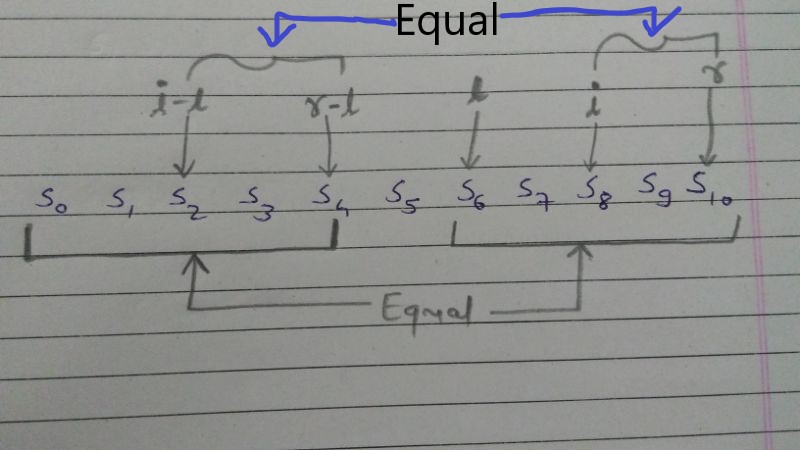 Equal
i-l r-l l i r
S₀ S₁ S₂ S₃ S₄ S₅ S₆ S₇ S₈ S₉ S₁₀
Equal